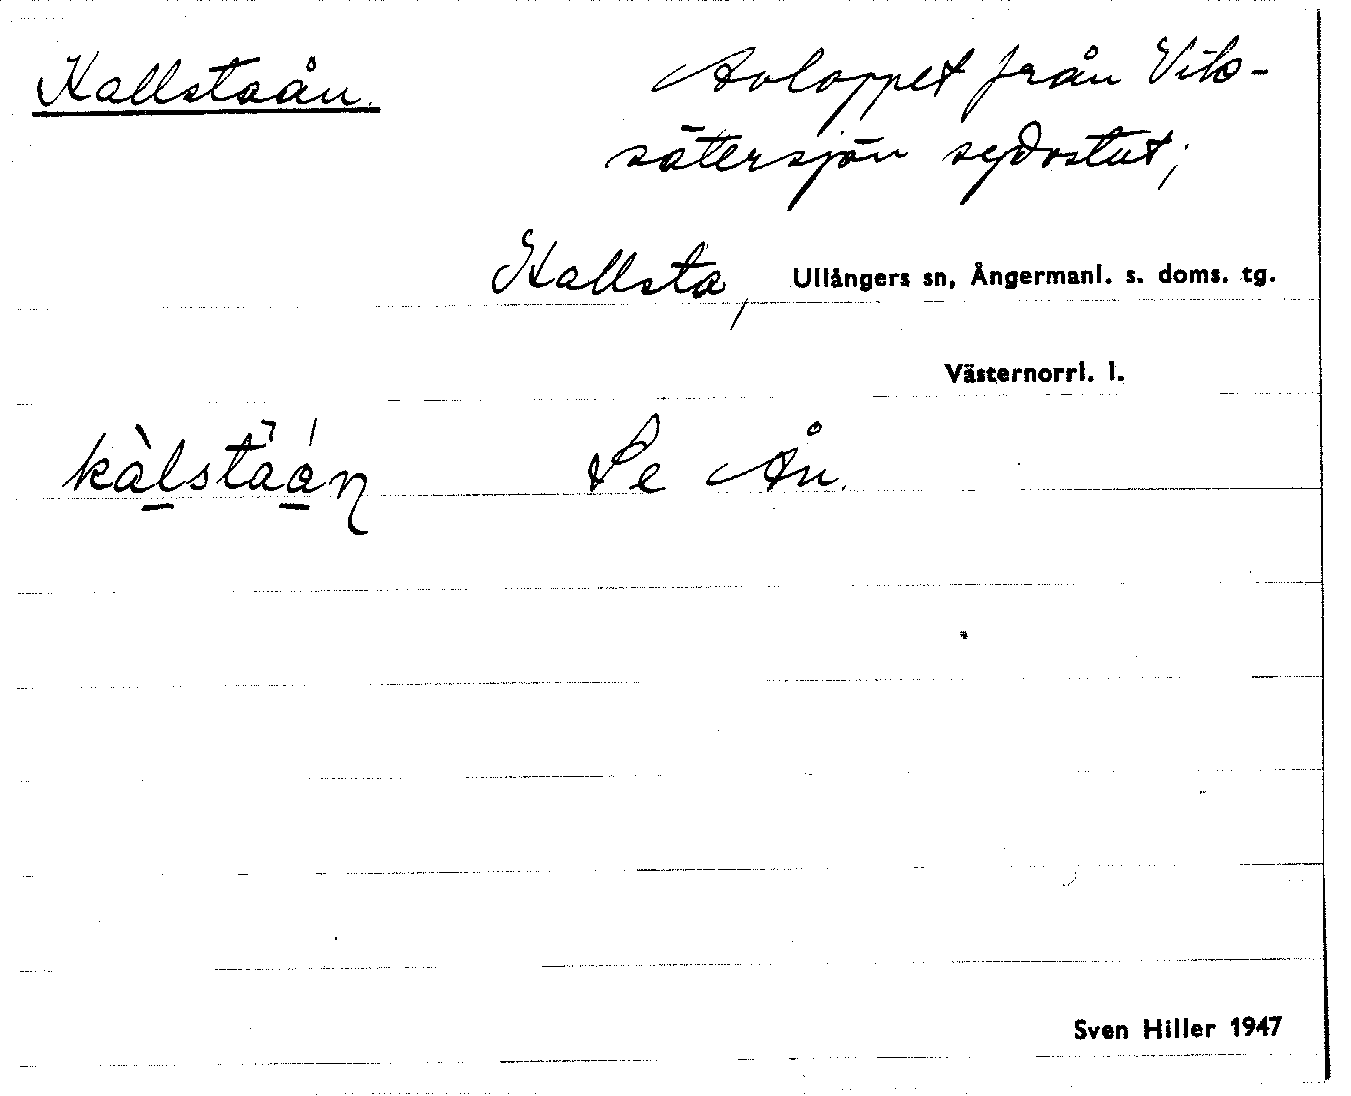 Kallstaån.
Avloppet från Vik-
sätersjön sydostut;
Kallsta, Ullångers sn, Ångermanl. s. doms. tg.
Västernorrl. l.
Se Ån.
Sven Hiller 1947